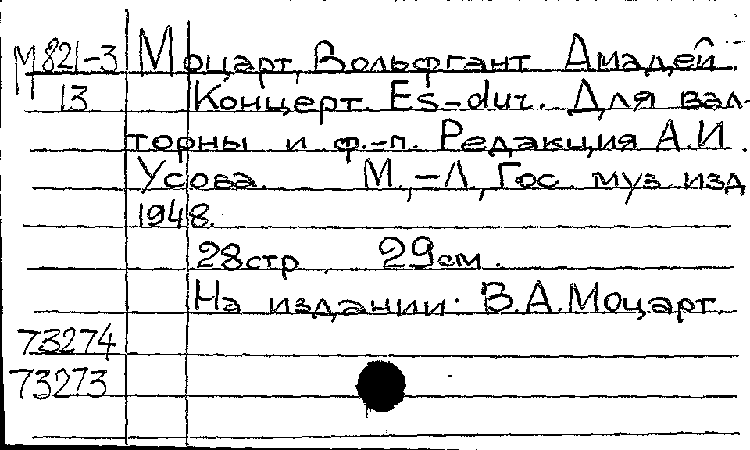 М 821-3 Моцарт, Вольфгант Амадей.
13 Концерт. Es-dur. Для вал-
торны и ф.-п. Редакция А.И.
Усова. М.,-Л, Гос. муз изд
1948.
28стр 29см.
На издании: В.А.Моцарт.
73274
73273